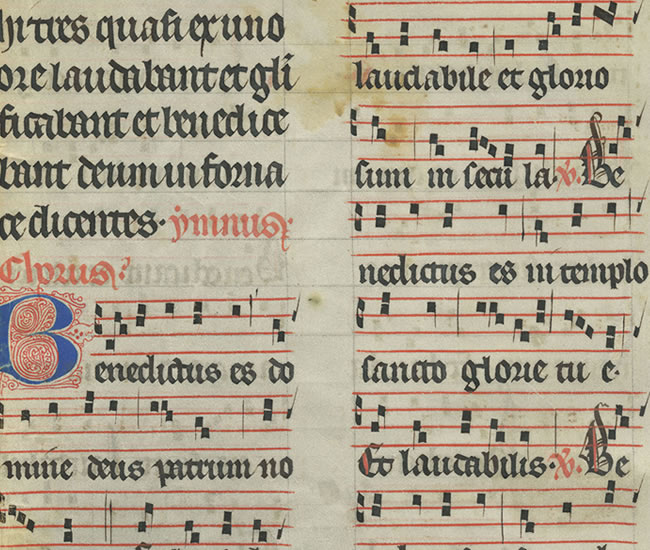 hi tres quasi ex uno
ore laudabant et gl̄i
ficabant et benedice
bant deum in forna
ce dicentes. ẏmnus
Chorus
Benedictus es do
mine deus patrum no
laudabile et glorio
sum in secu la. V. Be
nedictus es in templo
sancto glorie tu e.
Et laudabilis. V. Be